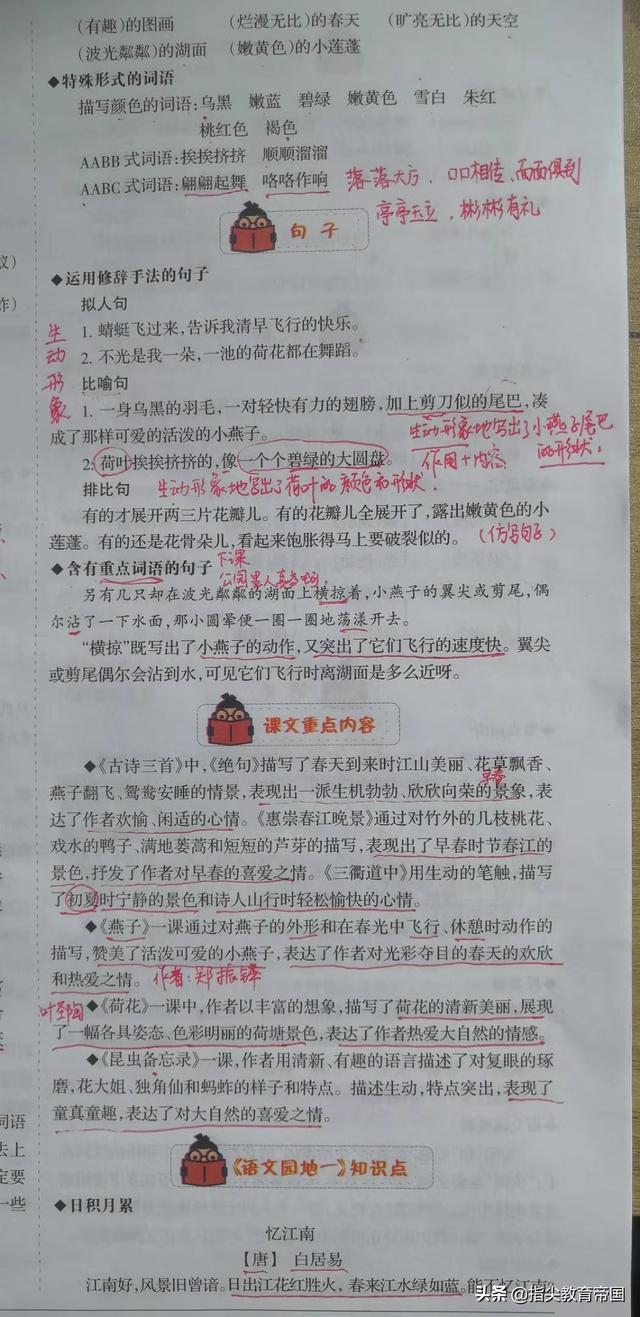 (有趣)的图画 (烂漫无比)的春天 (旷亮无比)的天空
(波光粼粼)的湖面 (嫩黄色)的小莲蓬
◆特殊形式的词语
描写颜色的词语:乌黑 嫩蓝 碧绿 嫩黄色 雪白 朱红
桃红色 褐色
AABB式词语:挨挨挤挤 顺顺溜溜
AABC式词语:翩翩起舞 咯咯作响 落落大方、口口相传、面面俱到
亭亭玉立、彬彬有礼
句子
◆运用修辞手法的句子
拟人句
生动形象
1. 蜻蜓飞过来,告诉我清早飞行的快乐。
2. 不光是我一朵,一池的荷花都在舞蹈。
比喻句
1. 一身乌黑的羽毛,一对轻快有力的翅膀,加上剪刀似的尾巴,凑
成了那样可爱的活泼的小燕子。
生动形象地写出了小燕子尾巴
的形状!
2. 荷叶挨挨挤挤的,像一个个碧绿的大圆盘。
作用+内容
排比句 生动形象地写出了荷叶的颜色和形状!
有的才展开两三片花瓣儿。有的花瓣儿全展开了,露出嫩黄色的小
莲蓬。有的还是花骨朵儿,看起来饱胀得马上要破裂似的。(仿写句子)
◆含有重点词语的句子
下课
公园里人真多啊
另有几只却在波光粼粼的湖面上横掠着,小燕子的翼尖或剪尾,偶
尔沾了一下水面,那小圆晕便一圈一圈地荡漾开去。
“横掠”既写出了小燕子的动作,又突出了它们飞行的速度快。翼尖
或剪尾偶尔会沾到水,可见它们飞行时离湖面是多么近呀。
课文重点内容
◆《古诗三首》中,《绝句》描写了春天到来时江山美丽、花草飘香、
早春
燕子翻飞、鸳鸯安睡的情景,表现出一派生机勃勃、欣欣向荣的景象,表
达了作者欢愉、闲适的心情。《惠崇春江晚景》通过对竹外的几枝桃花、
戏水的鸭子、满地蒌蒿和短短的芦芽的描写,表现出了早春时节春江的
景色,抒发了作者对早春的喜爱之情。《三衢道中》用生动的笔触,描写
了初夏时宁静的景色和诗人山行时轻松愉快的心情。
◆《燕子》一课通过对燕子的外形和在春光中飞行、休憩时动作的
描写,赞美了活泼可爱的小燕子,表达了作者对光彩夺目的春天的欢欣
和热爱之情。 作者:郑振铎
叶圣陶
◆《荷花》一课中,作者以丰富的想象,描写了荷花的清新美丽,展现
了一幅各具姿态、色彩明丽的荷塘景色,表达了作者热爱大自然的情感。
◆《昆虫备忘录》一课,作者用清新、有趣的语言描述了对复眼的琢
磨,花大姐、独角仙和蚂蚱的样子和特点。描述生动,特点突出,表现了
童真童趣,表达了对大自然的喜爱之情。
《语文园地一》知识点
◆日积月累
忆江南
【唐】 白居易
江南好,风景旧曾谙。日出江花红胜火,春来江水绿如蓝。能不忆江南?
头条 @指尖教育帝国
议)
作)
词语
去上
定要
一些